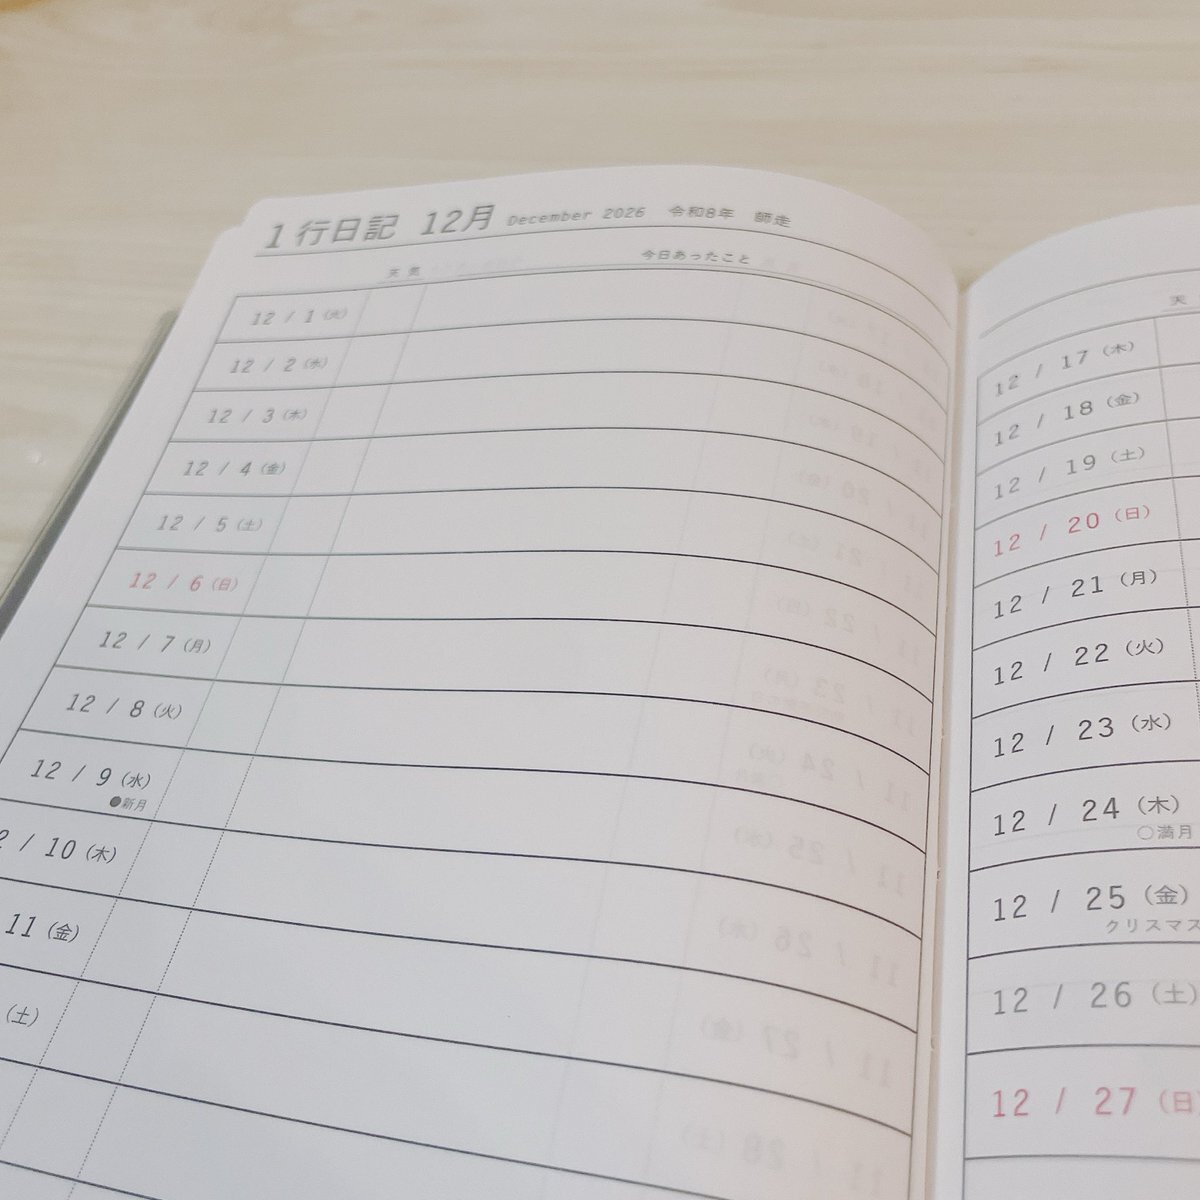 1行日記 12月 December 2026 令和8年 師走
天気 今日あったこと
12 / 1 (火)
12 / 2 (水)
12 / 3 (木)
12 / 4 (金)
12 / 5 (土)
12 / 6 (日)
12 / 7 (月)
12 / 8 (火)
12 / 9 (水)
●新月
2 / 10 (木)
11 (金)
(土)
天
12 / 17 (木)
12 / 18 (金)
12 / 19 (土)
12 / 20 (日)
12 / 21 (月)
12 / 22 (火)
12 / 23 (水)
12 / 24 (木)
○満月
12 / 25 (金)
クリスマス
12 / 26 (土)
12 / 27 (日)